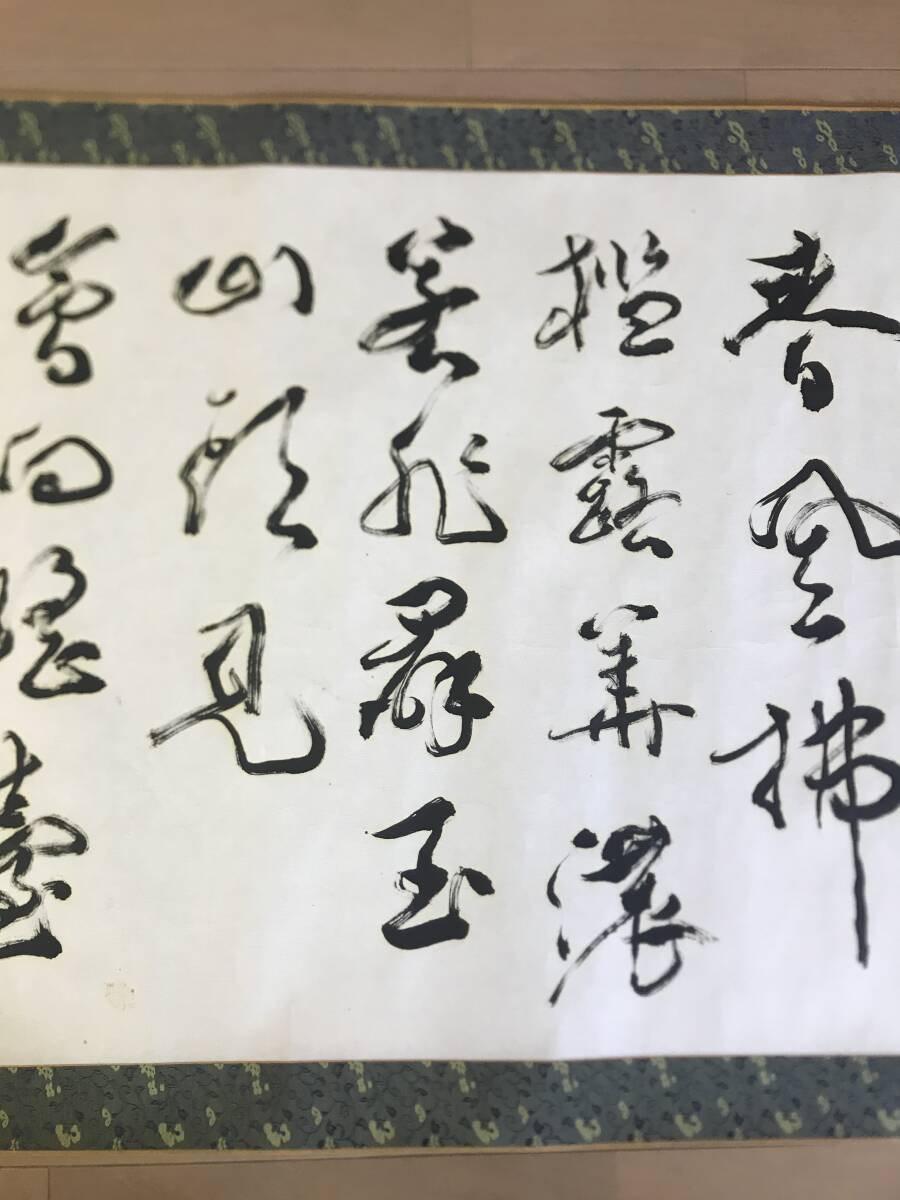 春風拂
檻露華濃
若非羣玉
山頭見
會向瑤臺